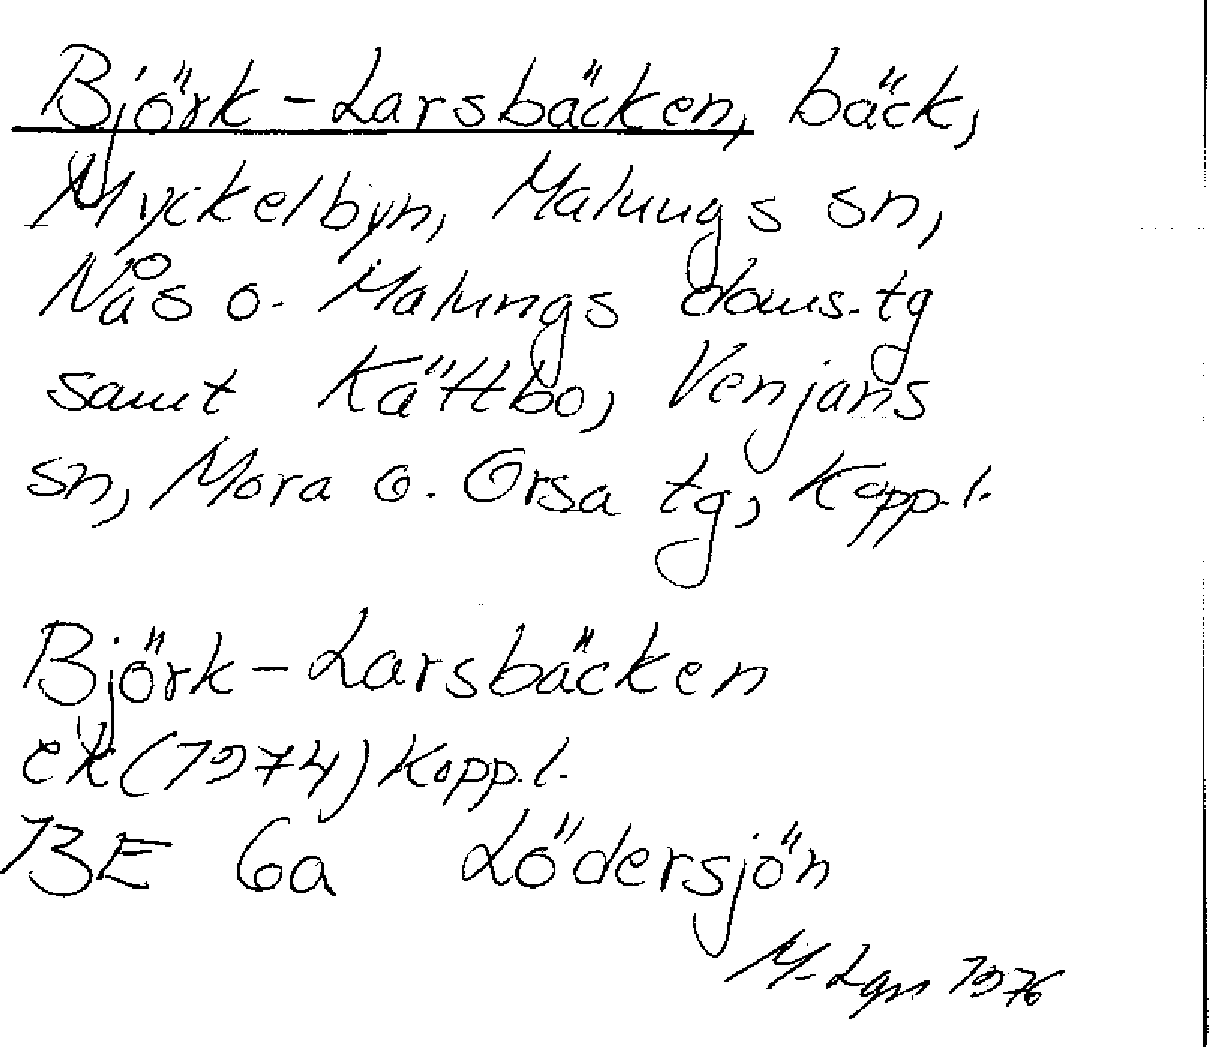 Björk-Larsbäcken, bäck,
Myckelbyn, Malungs sn,
Nås o. Malungs doms.tg
samt Kättbo, Venjans
sn, Mora o. Orsa tg, Kopp.l.
Björk-Larsbäcken
ek (1974) Kopp.l.
13E 6a Lödersjön
M-Lgn 1976